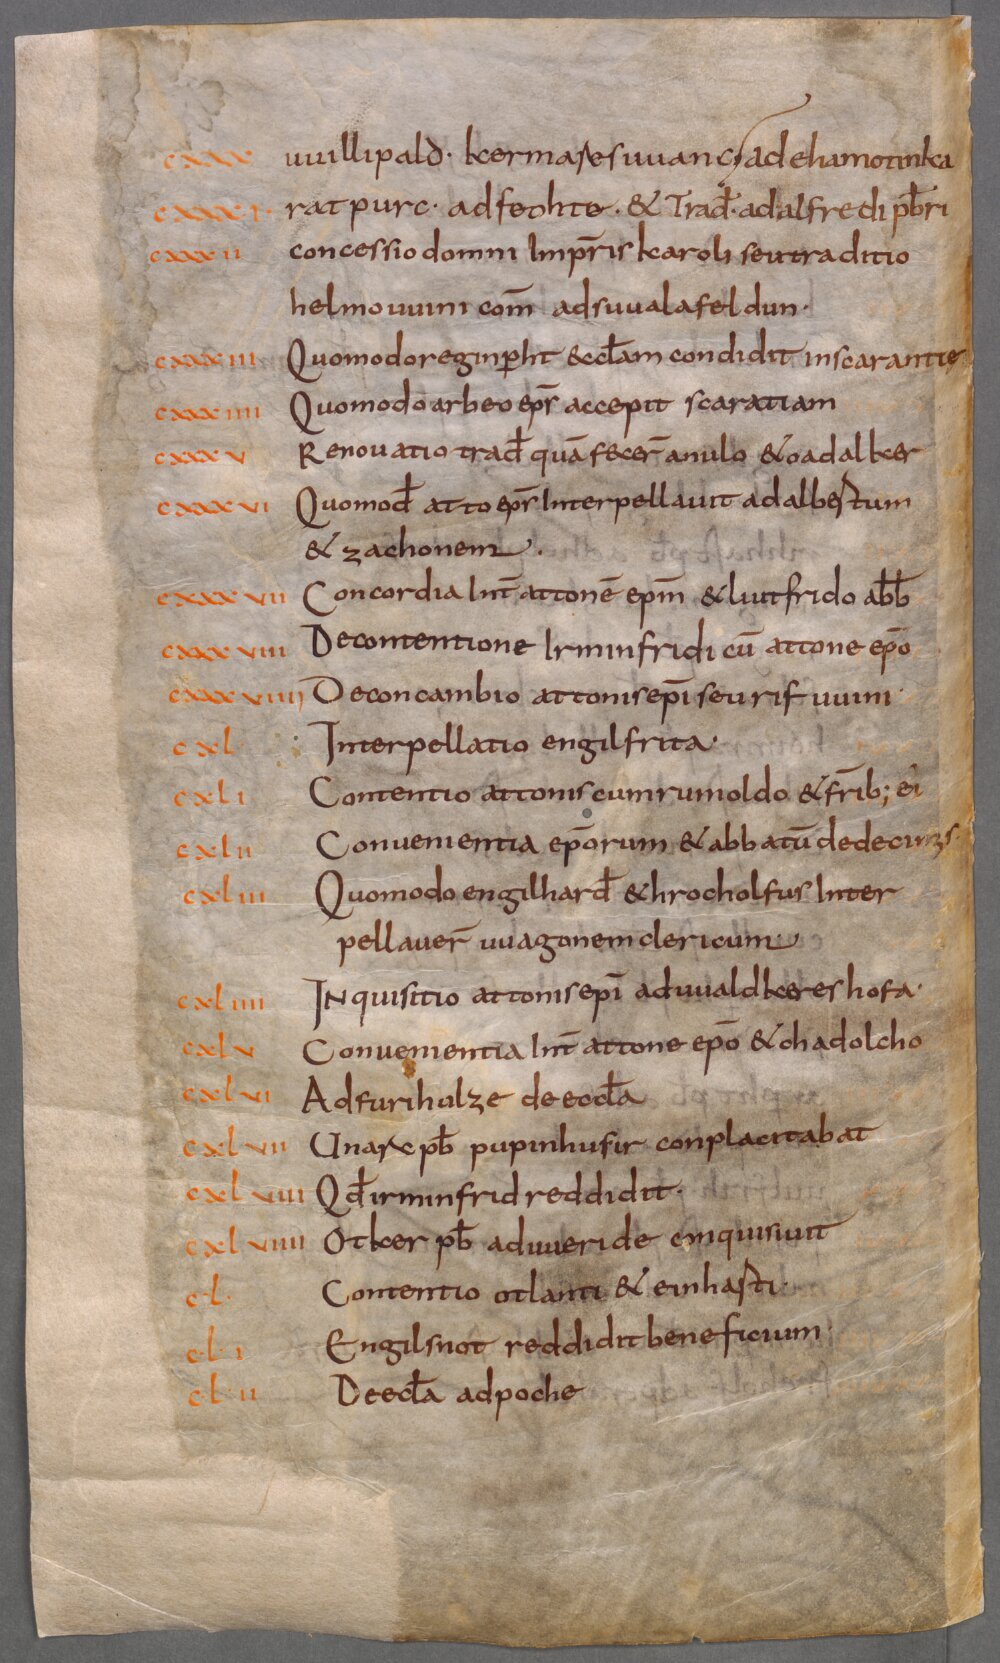 cxxx uuillipald· kermaresuuanc; ad ehamotinka
cxxxi· ratpurc· adfeohte· & Trad̄· adalfredi pb̄ri
cxxxii concessio domni Imp̄ris karoli seu traditio
helmouuini com̄ adsuualafeldun·
cxxxiii Quomodo reginp̲ht & eccl̄am condidit inscarantie
cxxxiiii Quomodo arbeo ep̄s accepit scaratiam
cxxxv Renouatio trad̄ quā fecer̄ anulo & oadalker
cxxxvi Quomod̄ atto ep̄s Interpellauit adalbertum
& zachonem·
cxxxvii Concordia Int̄ attonē ep̄m & liutfrido abb̄
cxxxviii De contentione Irminfridi cū attone ep̄o
cxxxviiii De concambio attonis ep̄i seu rifuuini·
cxl Interpellatio engilfrita·
cxli Contentio attonis cum rumoldo & fr̄ib; ei
cxlii Conuenientia ep̄orum & abbatū de decimis·
cxliii Quomodo engilhard̄ & hrocholfus Inter
pellauer̄ uuagonem clericum
cxliiii INquisitio attonis ep̄i aduualdkereshofa·
cxlv Conuenientia Int̄ attone ep̄o & chadolcho
cxlvi Ad furihulze de eccl̄a
cxlvii Unarc pb̄ pupinhusir conplacitabat
cxlviii Qd̄ irminfrid reddidit·
cxlviiii Otker pb̄ aduueride cinquisiuit
cl· Contentio otlanti & einharti·
cli Engilsnot reddidit beneficium·
clii De eccl̄a adpoche